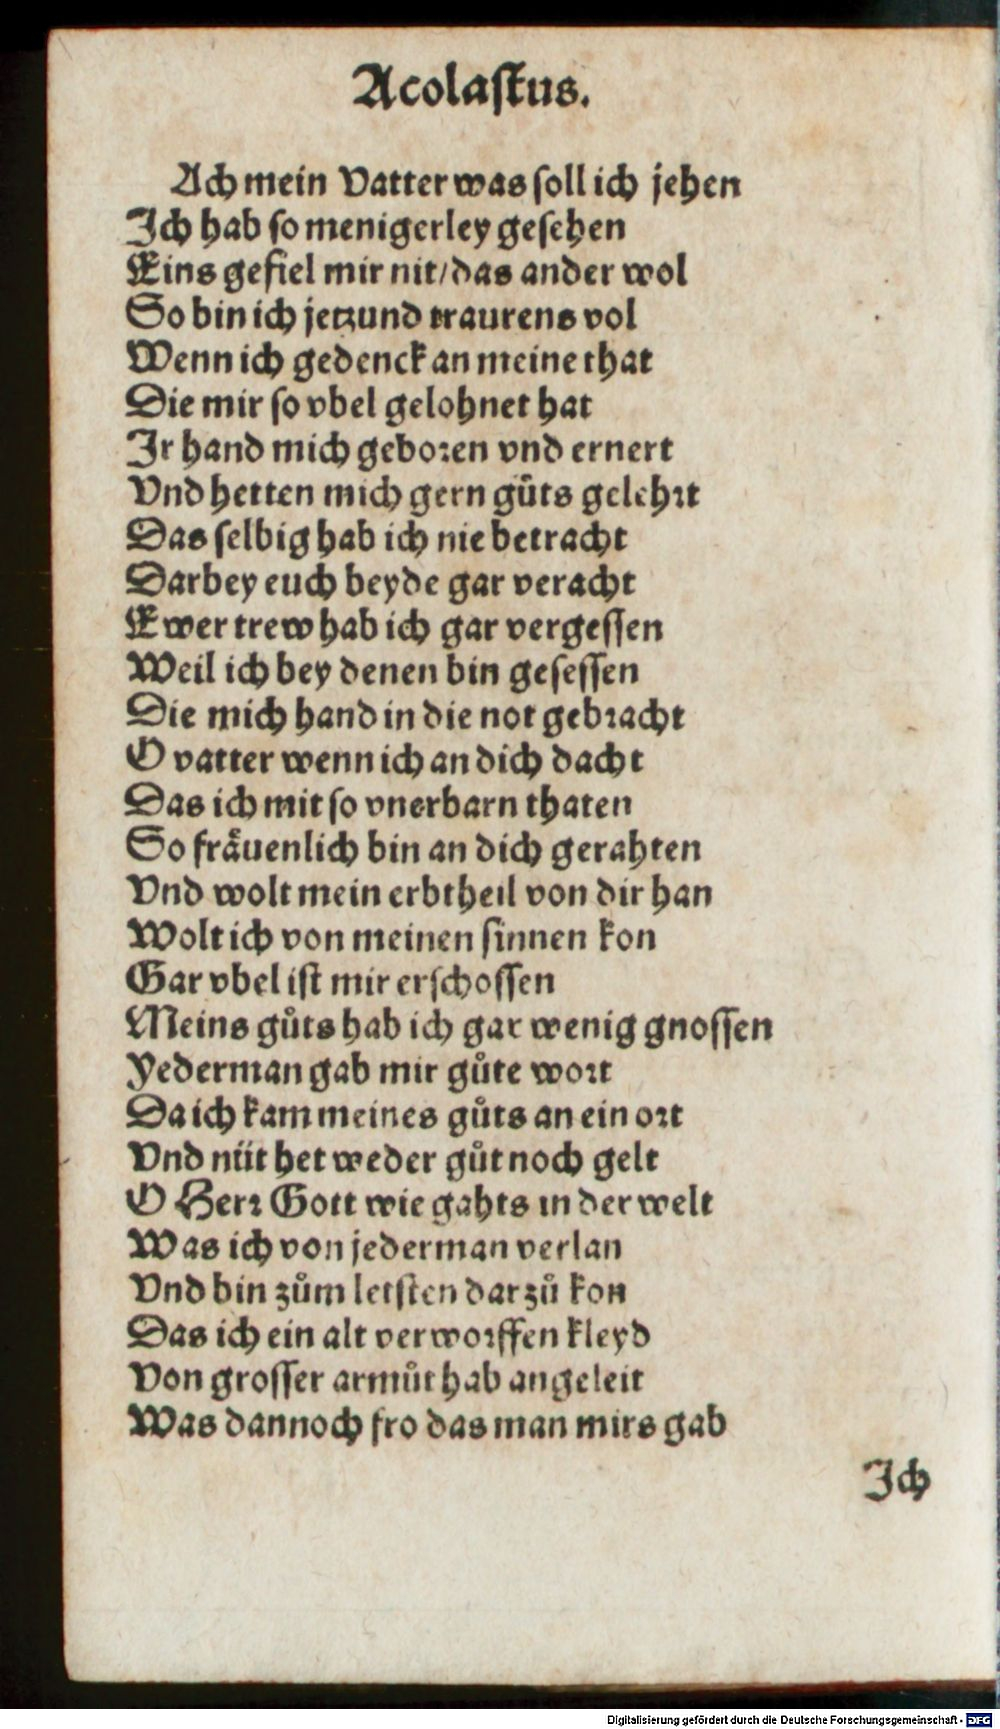 Acolastus.
Ach mein Vatter was soll ich jehen
Ich hab so menigerley gesehen
Eins gefiel mir nit/das ander wol
So bin ich jetzund traurens vol
Wenn ich gedenck an meine that
Die mir so vbel gelohnet hat
Ir hand mich geboren vnd ernert
Vnd hetten mich gern guͤts gelehrt
Das selbig hab ich nie betracht
Darbey euch beyde gar veracht
Ewer trew hab ich gar vergessen
Weil ich bey denen bin gesessen
Die mich hand in die not gebracht
O vatter wenn ich an dich dacht
Das ich mit so vnerbarn thaten
So fraͤuenlich bin an dich gerahten
Vnd wolt mein erbtheil von dir han
Wolt ich von meinen sinnen kon
Gar vbel ist mir erschossen
Meins guͦts hab ich gar wenig gnossen
Yederman gab mir guͦte wort
Da ich kam meines guͦts an ein ort
Vnd nüt het weder guͦt noch gelt
O Herr Gott wie gahts in der welt
Was ich von jederman verlan
Vnd bin zuͦm letsten darzuͦ kon
Das ich ein alt verworffen kleyd
Von grosser armuͦt hab angeleit
Was dannoch fro das man mirs gab
Ich
Digitalisierung gefördert durch die Deutsche Forschungsgemeinschaft - DFG